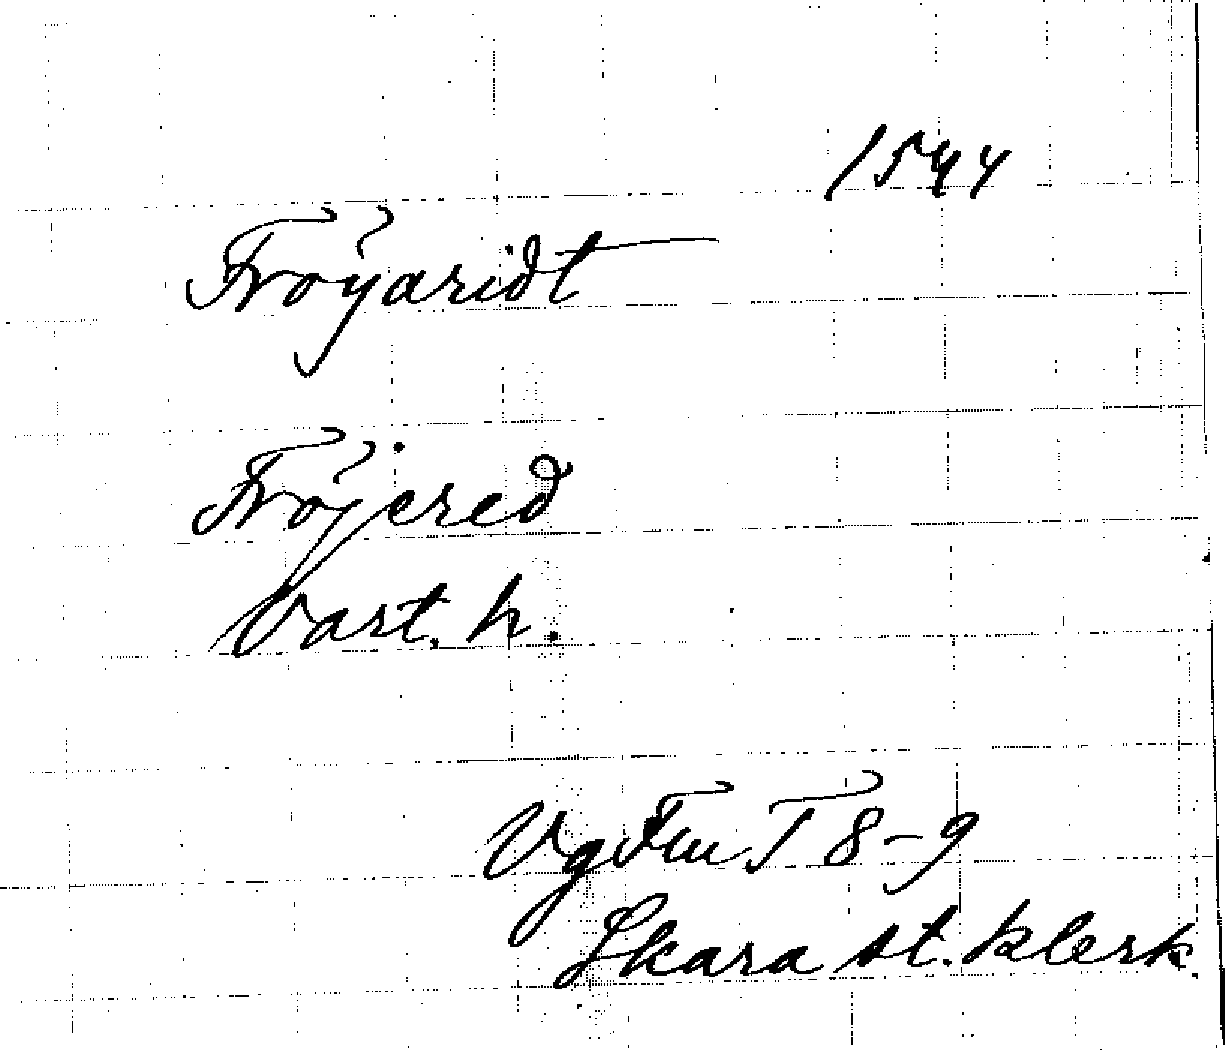 1544
Fröyaridt
Fröjered
Vart. h.
Vg Fm T 8-9
Skara st. klerk.